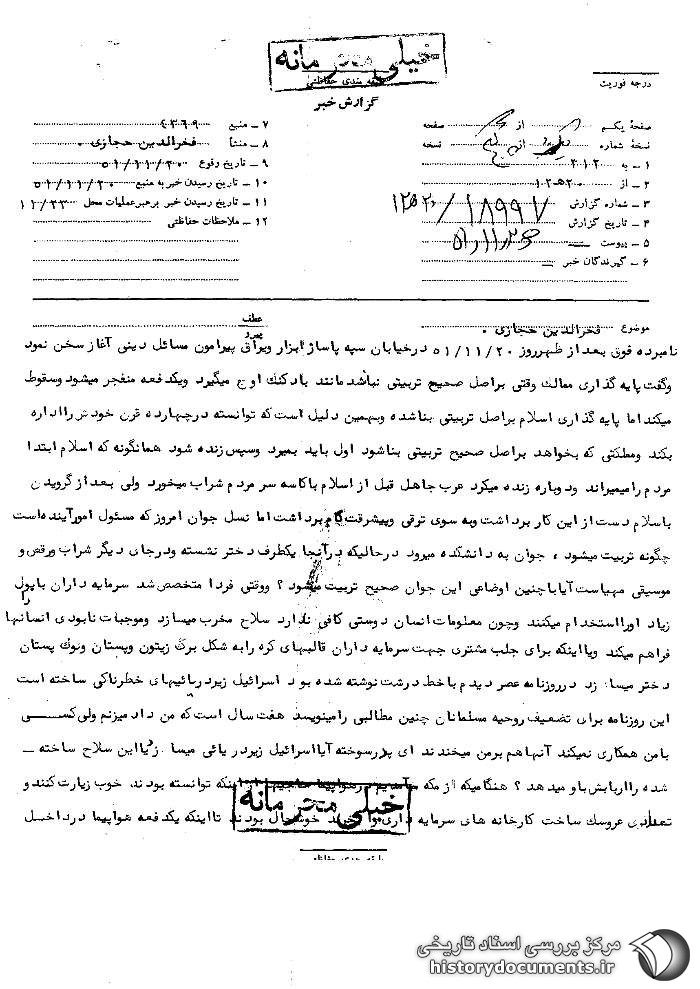 خیلی محرمانه
طبقه بندی حفاظتی
گزارش خبر
درجه فوریت
صفحه یکم از صفحه
نسخه شماره از نسخه
۱ ـ به ۳۱۲
۲ ـ از ۲۰ ه ۱۲
۳ ـ شماره گزارش ۱۸۹۹۷ / ۲۰ ه ۱۲
۴ ـ تاریخ گزارش
۵ ـ پیوست
۶ ـ گیرندگان خبر
۷ ـ منبع ۴۳۶۹
۸ ـ منشأ فخرالدین حجازی ۰
۹ ـ تاریخ وقوع ۵۱/۱۱/۲۰
۱۰ ـ تاریخ رسیدن خبر به منبع ۵۱/۱۱/۲۰
۱۱ ـ تاریخ رسیدن خبر برهبر عملیات محل ۱۱/۲۳
۱۲ ـ ملاحظات حفاظتی
موضوع فخرالدین حجازی ۰ عطف
نامبرده فوق بعد از ظهر روز ۵۱/۱۱/۲۰ در خیابان سپه پاساژ ابزار ویراق پیرامون مسائل دینی آغاز سخن نمود
وگفت پایه گذاری ممالک وقتی براصل صحیح تربیتی نباشد مانند بادکنک اوج میگیرد ویکدفعه منفجر میشود وسقوط
میکند اما پایه گذاری اسلام براصل تربیتی بناشده وبهمین دلیل است که توانسته در چهارده قرن خودش را اداره
بکند ومملکتی که بخواهد براصل صحیح تربیتی بناشود اول باید بمیرد وسپس زنده شود همانگونه که اسلام ابتدا
مردم رامیمیراند ودوباره زنده میکرد عرب جاهل قبل از اسلام باکاسه سر مردم شراب میخورد ولی بعد از گرویدن
باسلام دست از این کار برداشت وبه سوی ترقی وپیشرفت گام برداشت اما نسل جوان امروز که مسئول امور آینده است
چگونه تربیت میشود ، جوان به دانشکده میرود درحالیکه درآنجا یکطرف دختر نشسته ودرجای دیگر شراب ورقص و
موسیقی مهیاست آیا باچنین اوضاعی این جوان صحیح تربیت میشود ؟ ووقتی فردا متخصص شد سرمایه داران باپول
زیاد اورا استخدام میکنند وچون معلومات انسان دوستی کافی ندارد سلاح مخرب میسازد وموجبات نابودی انسانها را
فراهم میکند ویا اینکه برای جلب مشتری جهت سرمایه داران قالبهای کره رابه شکل برگ زیتون وپستان ونوک پستان
دختر میسازد در روزنامه عصر دیدم باخط درشت نوشته شده بود اسرائیل زیردریائیهای خطرناکی ساخته است
این روزنامه برای تضعیف روحیه مسلمانان چنین مطالبی رامینویسد هفت سال است که من داد میزنم ولی کسی
بامن همکاری نمیکند آنها هم برمن میخندند ای پدرسوخته آیا اسرائیل زیردریائی میسازد یا این سلاح ساخته ـ
شده را اربابش باو میدهد ؟ هنگامیکه از مکه هواپیما از اینکه توانسته بودند خوب زیارت کنند و
تعدادی عروسک ساخت کارخانه های سرمایه داری خوشحال بودند تا اینکه یکدفعه هواپیما در داخل
خیلی محرمانه
طبقه بندی حفاظتی
مرکز بررسی اسناد تاریخی
historydocuments.ir